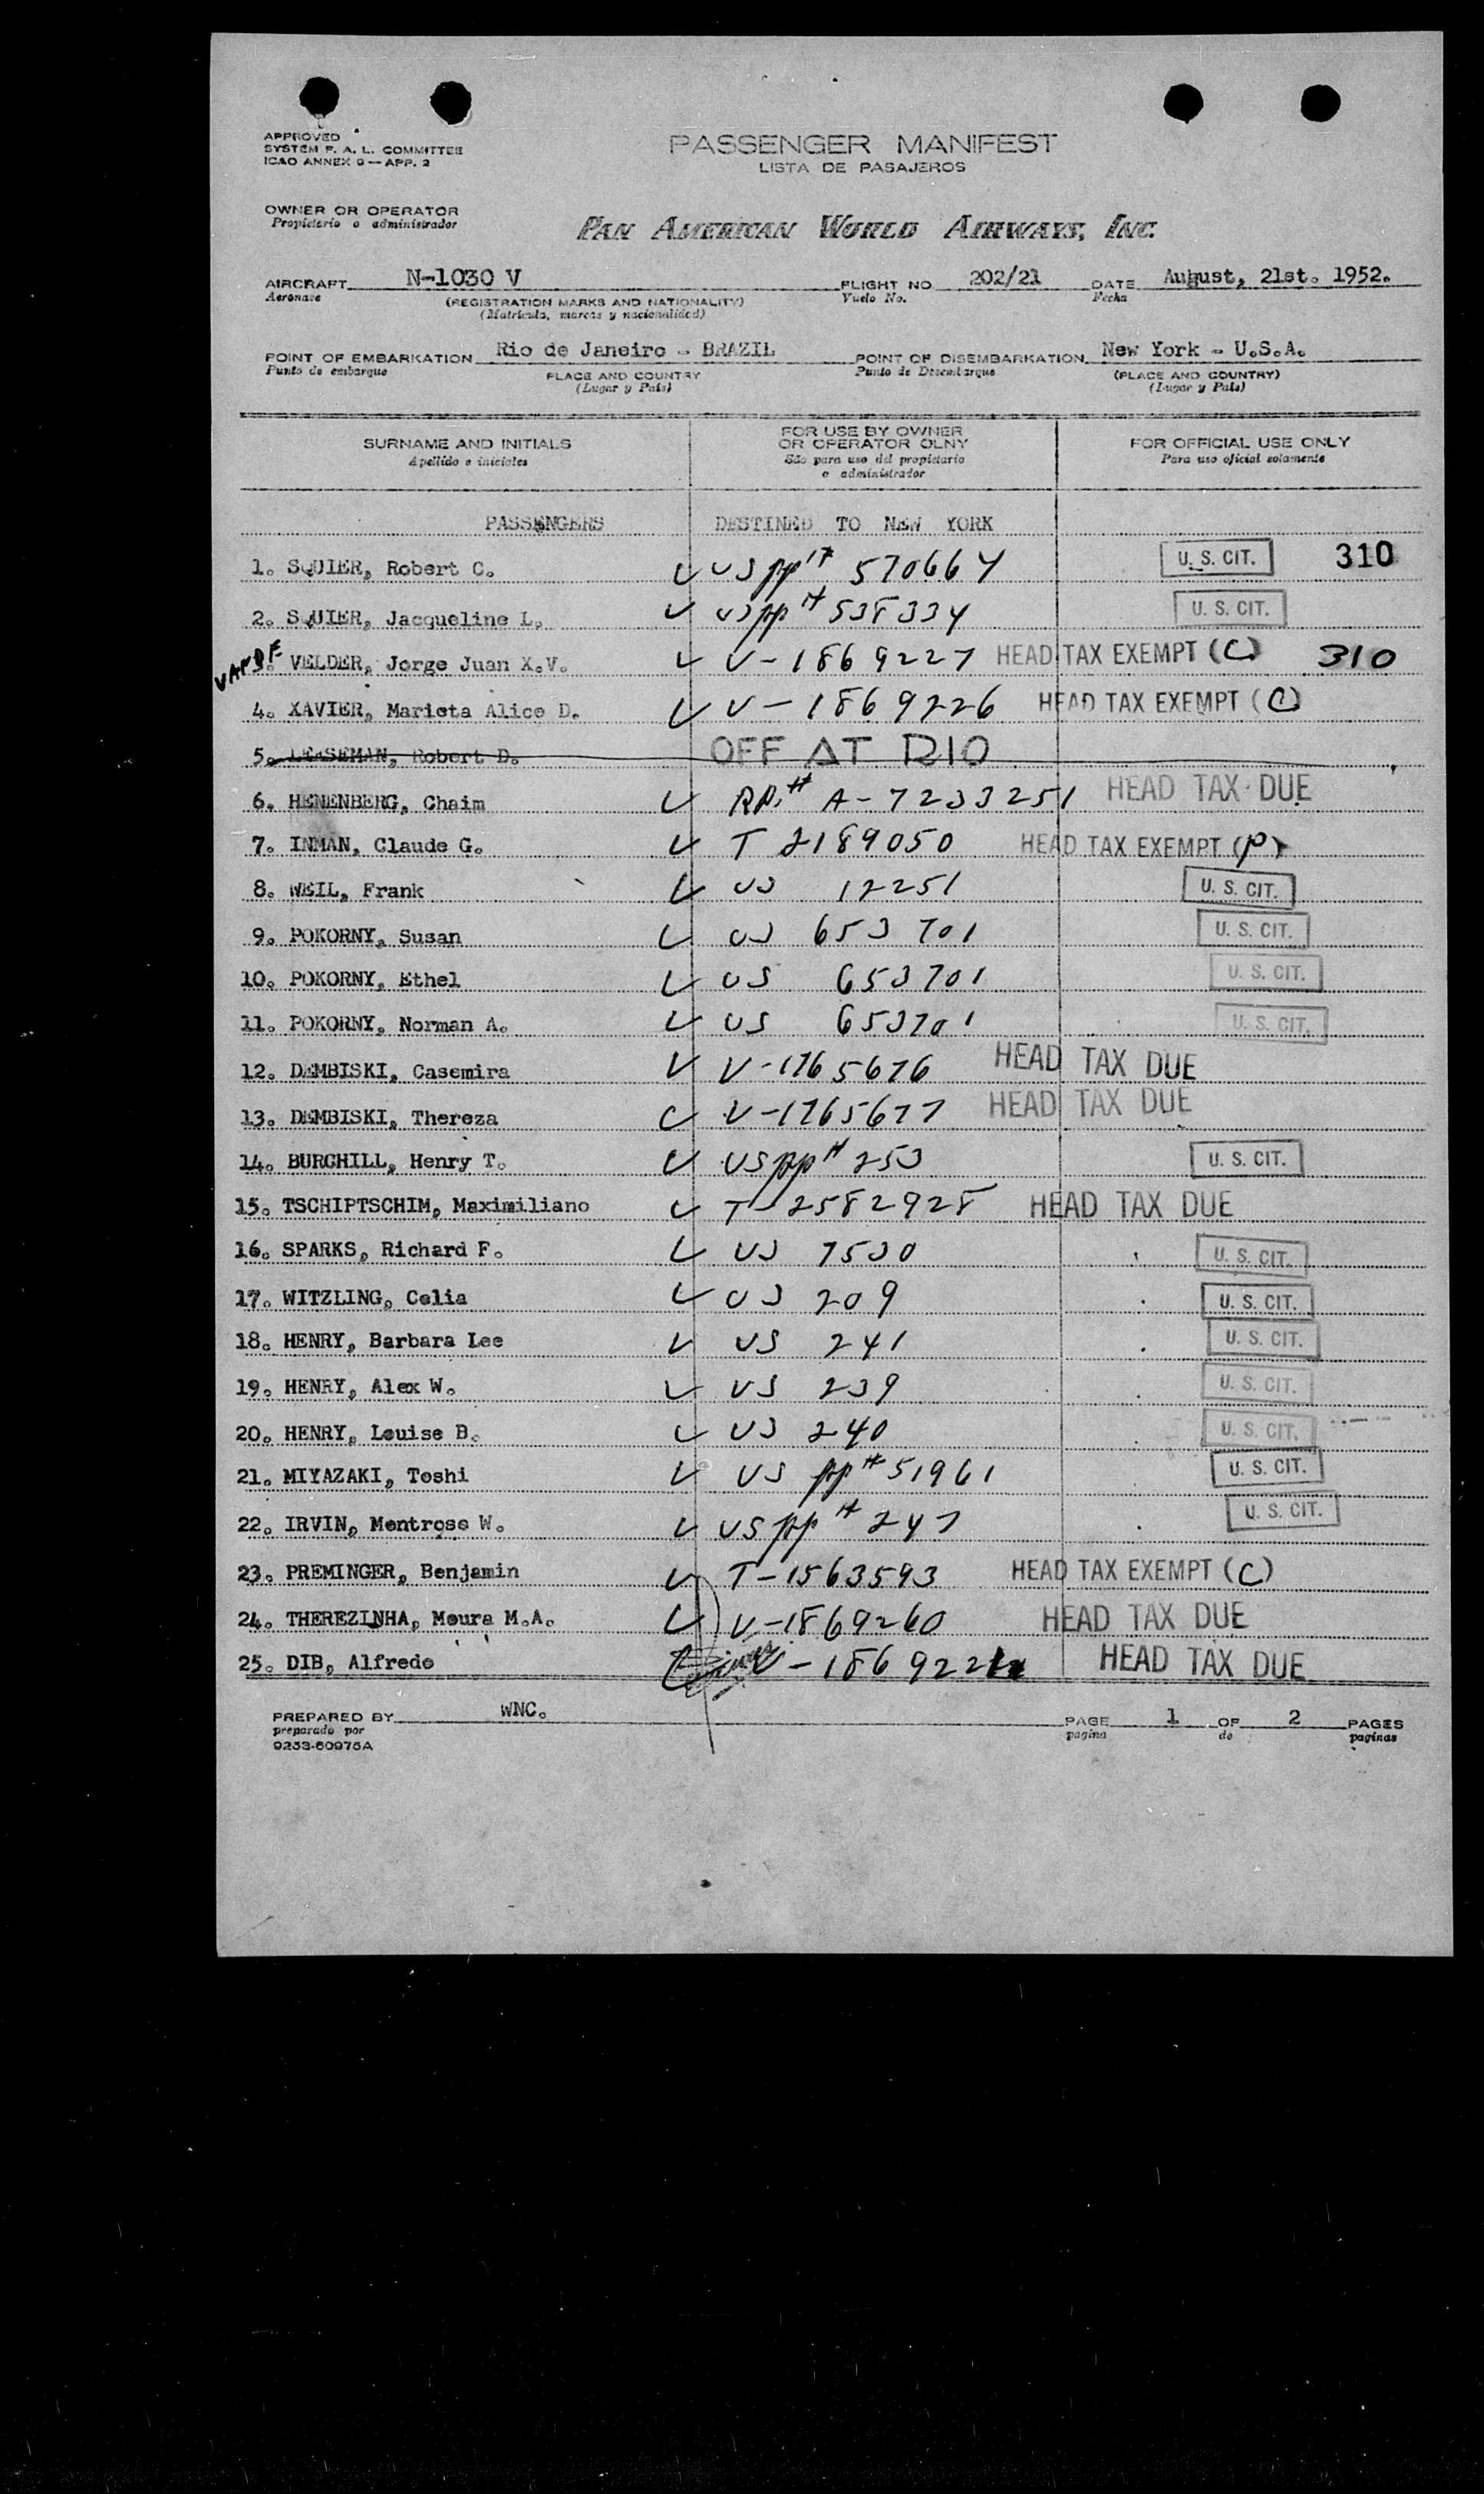 APPROVED
SYSTEM F. A. L. COMMITTEE
ICAO ANNEX 9 — APP. 2
PASSENGER MANIFEST
LISTA DE PASAJEROS
OWNER OR OPERATOR
Propietario o administrador
PAN AMERICAN WORLD AIRWAYS, INC.
AIRCRAFT N-1030 V FLIGHT NO 202/21 DATE August, 21st. 1952.
Aeronave (REGISTRATION MARKS AND NATIONALITY) Vuelo No. Fecha
(Matricula, marcas y nacionalidad)
POINT OF EMBARKATION Rio de Janeiro - BRAZIL POINT OF DISEMBARKATION New York - U.S.A.
Punto de embarque PLACE AND COUNTRY Punto de Desembarque (PLACE AND COUNTRY)
(Lugar y País) (Lugar y País)
SURNAME AND INITIALS FOR USE BY OWNER OR OPERATOR OLNY FOR OFFICIAL USE ONLY
Apellido e iniciales São para uso del propietario o administrador Para uso oficial solamente
PASSENGERS DESTINED TO NEW YORK
1. SQUIER, Robert C. US pp# 570664 U. S. CIT. 310
2. SQUIER, Jacqueline L. US pp# 538334 U. S. CIT.
VANDE VELDER, Jorge Juan X.V. V-1869227 HEAD TAX EXEMPT (C) 310
4. XAVIER, Marieta Alice D. V-1869226 HEAD TAX EXEMPT (C)
5. Robert D. OFF AT RIO
6. HENENBERG, Chaim A-7233251 HEAD TAX DUE
7. INMAN, Claude G. T 2189050 HEAD TAX EXEMPT (P)
8. WEIL, Frank US 12251 U. S. CIT.
9. POKORNY, Susan US 653701 U. S. CIT.
10. POKORNY, Ethel US 653701 U. S. CIT.
11. POKORNY, Norman A. US 653701 U. S. CIT.
12. DEMBISKI, Casemira V-1765676 HEAD TAX DUE
13. DEMBISKI, Thereza V-1765677 HEAD TAX DUE
14. BURCHILL, Henry T. US pp# 253 U. S. CIT.
15. TSCHIPTSCHIM, Maximiliano T-2582928 HEAD TAX DUE
16. SPARKS, Richard F. US 7530 U. S. CIT.
17. WITZLING, Celia US 209 U. S. CIT.
18. HENRY, Barbara Lee US 241 U. S. CIT.
19. HENRY, Alex W. US 239 U. S. CIT.
20. HENRY, Louise B. US 240 U. S. CIT.
21. MIYAZAKI, Toshi US pp# 51961 U. S. CIT.
22. IRVIN, Montrose W. US pp# 247 U. S. CIT.
23. PREMINGER, Benjamin T-1563593 HEAD TAX EXEMPT (C)
24. THEREZINHA, Moura M.A. V-1869260 HEAD TAX DUE
25. DIB, Alfredo HEAD TAX DUE
PREPARED BY WNC. PAGE 1 OF 2 PAGES
preparado por pagina de paginas
9253-60975A